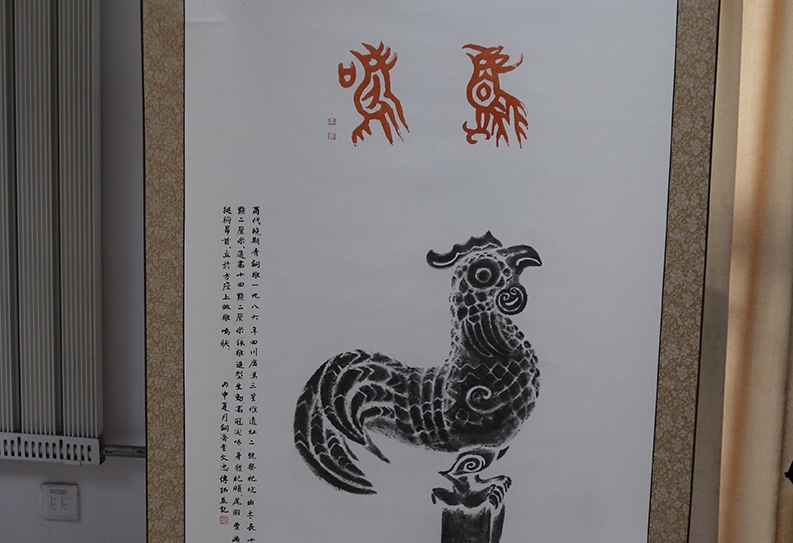 鳴
商代晚期青銅雞一九八六年四川廣漢三星堆遺址二號祭祀坑出土長十
點二厘米、通高十四點二厘米該雞造型生動高冠尖喙身體肥碩尾羽豐滿
挺胸昂首、立於方座上做雞鳴狀、
丙申夏月銅齋賈文忠傳拓並記